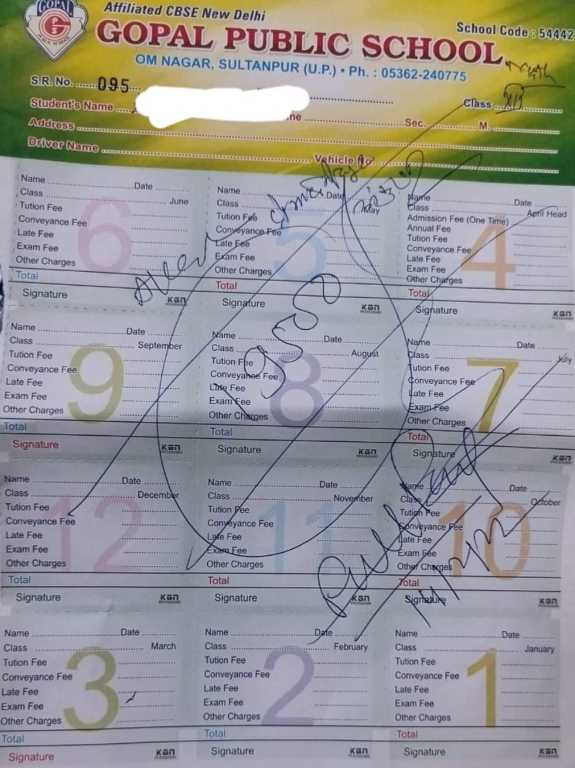 Affiliated CBSE New Delhi
School Code : 54442
GOPAL
GOPAL PUBLIC SCHOOL
OM NAGAR, SULTANPUR (U.P.) • Ph. : 05362-240775
S.R. No. 095
Class
Student's Name
Sec. M.
Address
Driver Name
Vehicle No
6
Name Date
Class June
Tution Fee
Conveyance Fee
Late Fee
Exam Fee
Other Charges
Total
Signature
KBN
5
Name Date
Class May
Tution Fee
Conveyance Fee
Late Fee
Exam Fee
Other Charges
Total
Signature
KBN
4
Name Date
Class April Head
Admission Fee (One Time)
Annual Fee
Tution Fee
Conveyance Fee
Late Fee
Exam Fee
Other Charges
Total
Signature
KBN
9
Name Date
Class September
Tution Fee
Conveyance Fee
Late Fee
Exam Fee
Other Charges
Total
Signature
KBN
8
Name Date
Class August
Tution Fee
Conveyance Fee
Late Fee
Exam Fee
Other Charges
Total
Signature
KBN
7
Name Date
Class July
Tution Fee
Conveyance Fee
Late Fee
Exam Fee
Other Charges
Total
Signature
KBN
12
Name Date
Class December
Tution Fee
Conveyance Fee
Late Fee
Exam Fee
Other Charges
Total
Signature
KBN
11
Name Date
Class November
Tution Fee
Conveyance Fee
Late Fee
Exam Fee
Other Charges
Total
Signature
KBN
10
Name Date
Class October
Tution Fee
Conveyance Fee
Late Fee
Exam Fee
Other Charges
Total
Signature
KBN
3
Name Date
Class March
Tution Fee
Conveyance Fee
Late Fee
Exam Fee
Other Charges
Total
Signature
KBN
2
Name Date
Class February
Tution Fee
Conveyance Fee
Late Fee
Exam Fee
Other Charges
Total
Signature
KBN
1
Name Date
Class January
Tution Fee
Conveyance Fee
Late Fee
Exam Fee
Other Charges
Total
Signature
KBN